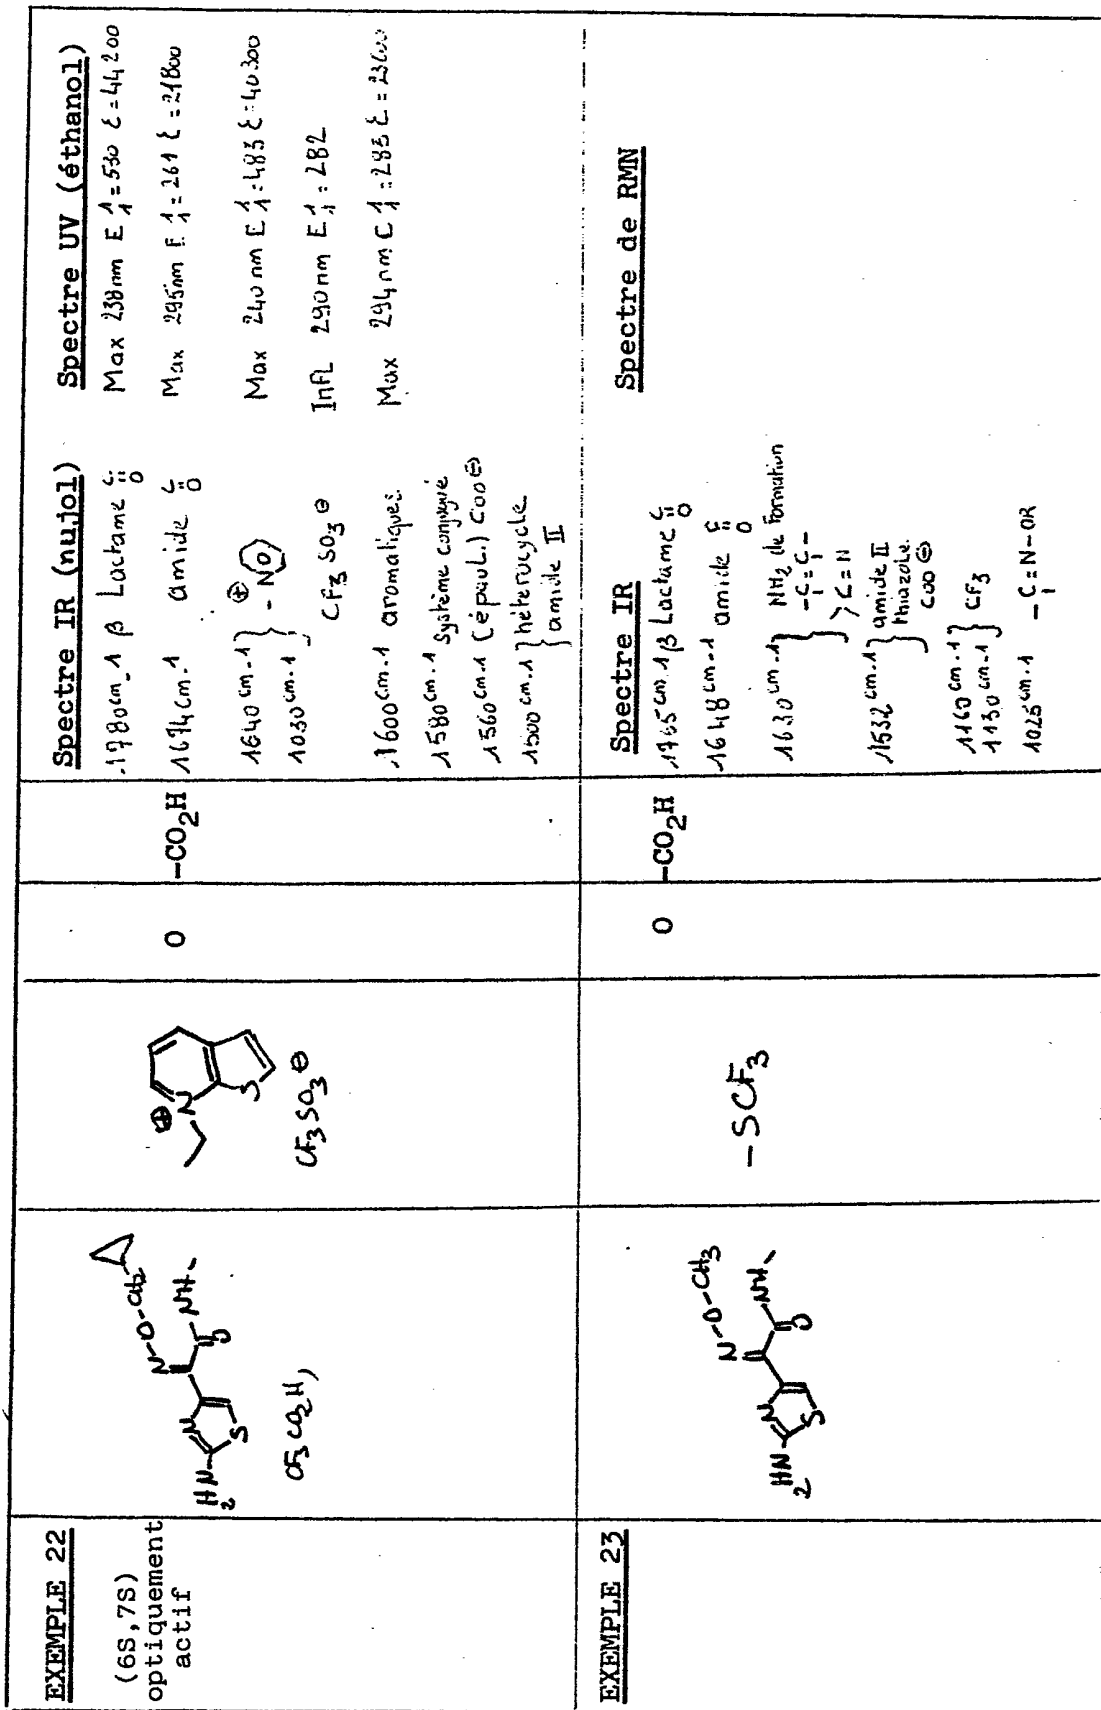 EXEMPLE 22
(6S,7S)
optiquement
actif
N-O-CH2
H2N
N
S
O
NH-
CF3CO2H,
⊕
N
S
CF3SO3⊖
O
-CO2H
Spectre IR (nujol)
1780 cm-1 β Lactame C=O
1674 cm-1 amide C=O
1640 cm-1 } ⊕ -N
1030 cm-1 } CF3SO3⊖
1600 cm-1 aromatiques
1580 cm-1 Système conjugué
1560 cm-1 (épaul.) COO⊖
1500 cm-1 } hétérocycle
amide II
Spectre UV (éthanol)
Max 238nm E 1 1 = 530 ε = 44 200
Max 295nm E 1 1 = 261 ε = 21800
Max 240 nm E 1 1 = 483 ε = 40300
Infl 290nm E 1 1 = 282
Max 294nm E 1 1 = 283 ε = 23600
EXEMPLE 23
N-O-CH3
H2N
N
S
O
NH-
-SCF3
O
-CO2H
Spectre IR
1765 cm-1 β Lactame C=O
1648 cm-1 amide C=O
1630 cm-1 } NH2 de formation
-C=C-
>C=N
1532 cm-1 } amide II
thiazole
COO⊖
1160 cm-1 } CF3
1130 cm-1
1025 cm-1 -C=N-OR
Spectre de RMN